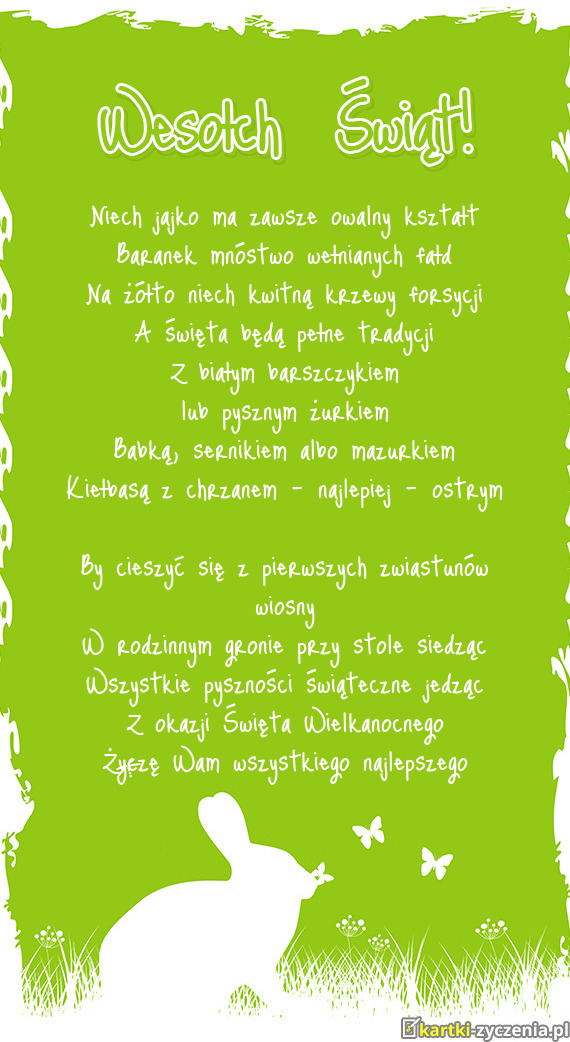 Wesołch Świąt!
Niech jajko ma zawsze owalny kształt
Baranek mnóstwo wełnianych fałd
Na żółto niech kwitną krzewy forsycji
A święta będą pełne tradycji
Z białym barszczykiem
lub pysznym żurkiem
Babką, sernikiem albo mazurkiem
Kiełbasą z chrzanem - najlepiej - ostrym
By cieszyć się z pierwszych zwiastunów
wiosny
W rodzinnym gronie przy stole siedząc
Wszystkie pyszności świąteczne jedząc
Z okazji Święta Wielkanocnego
Życzę Wam wszystkiego najlepszego
kartki-zyczenia.pl